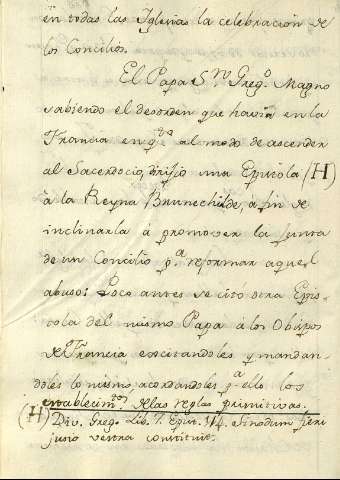 en todas las Iglesias la celebracion de
los Concilios.
El Papa Sn. Grego. Magno
sabiendo el desorden que havia en la
Francia en qto. al modo de ascender
al Sacerdocio, dirijio una Epistola (H)
à la Reyna Brunechilde, à fin de
inclinarla à promover la junta
de un Concilio pa. reformar aquel
abuso: Poco antes se citó otra Epis-
tola del mismo Papa à los Obispos
de Francia excitandoles y mandan-
doles lo mismo, acordandoles pa. ello los
establecimtos. de las reglas primitivas.
(H) Div. Greg. Lib. 7. Epist. 114. Sinodum fieri
jusio vestra constituit.